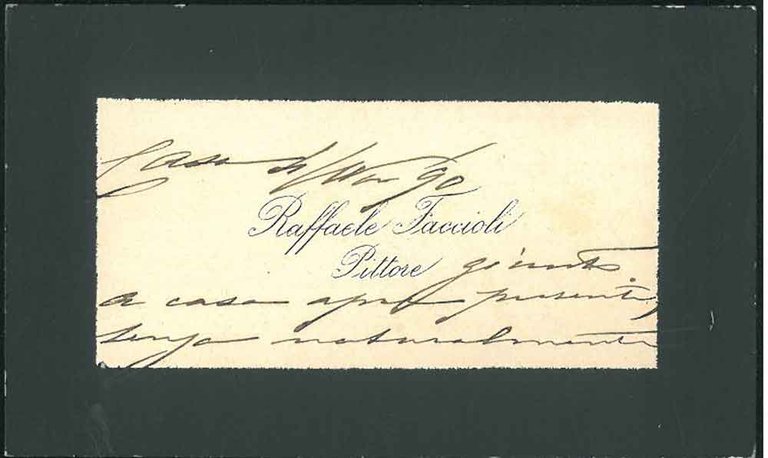 Raffaele Faccioli
Pittore giunto
a casa apro presente,
senza naturalmente